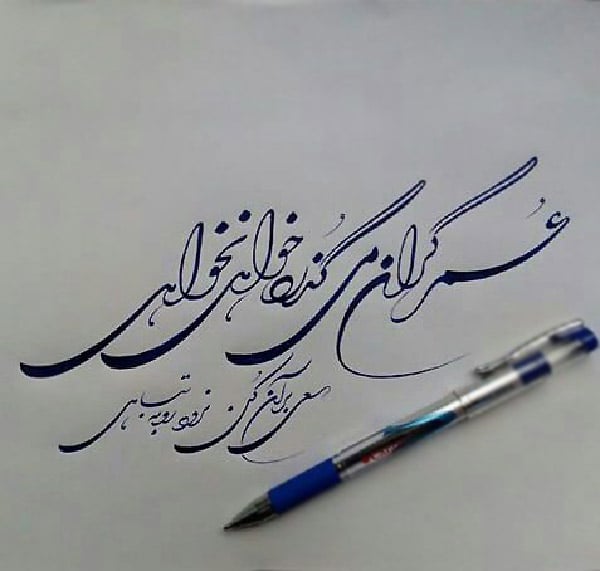 عُمر گران می گُذرد خواهی نخواهی
سعی بر آن کُن نرود رو به تباهی